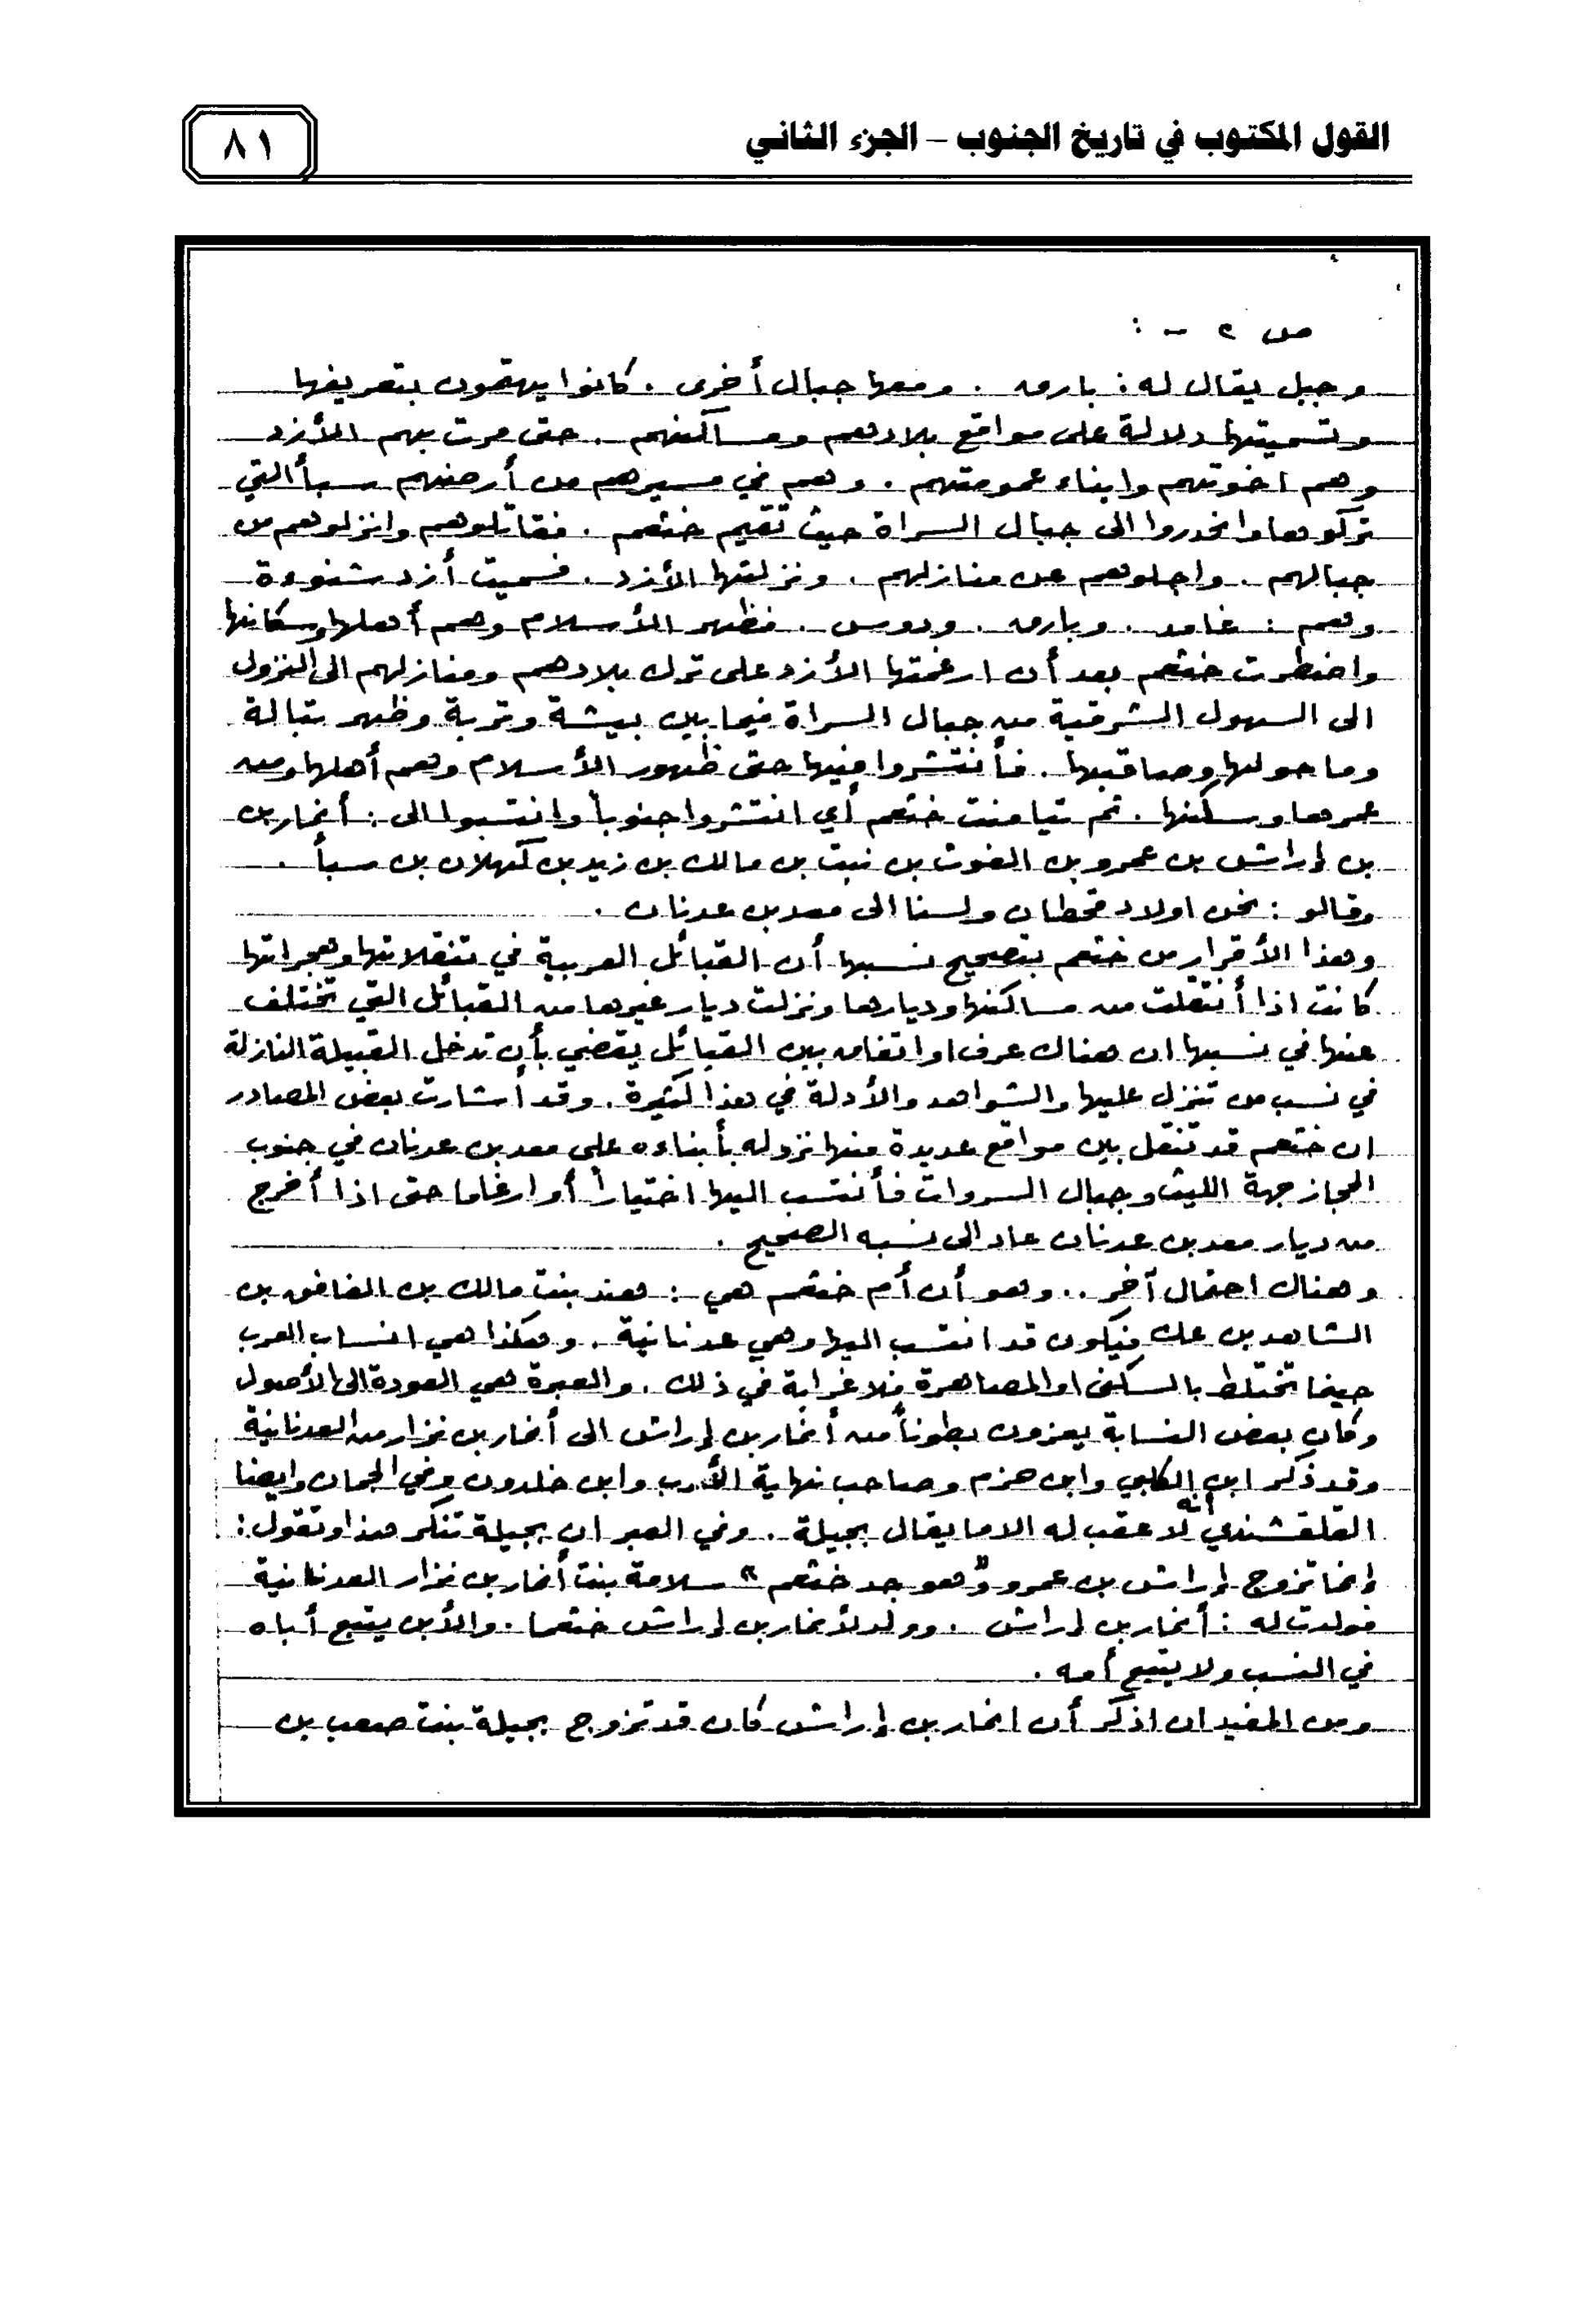 القول المكتوب في تاريخ الجنوب – الجزء الثاني
٨١
ص ٢ - :
وجبل يقال له : بارق . ومعها جبال أخرى . كانوا يهتمون بتعريفها
وتسميتها دلالة على مواقع بلادهم ومساكنهم . حتى مرت بهم الأزد
وهم اخوتهم وابناء عمومتهم . وهم في مسيرهم من أرضهم سبأ التي
تركوها وانحدروا الى جبال السراة حيث تقيم خثعم . فقاتلوهم وانزلوهم من
جبالهم . واجلوهم عن منازلهم . ونزلتها الأزد . فسميت أزد شنوءة
وهم : غامد . وبارق . ودوس . فظهر الأسلام وهم أهلها وسكانها
واضطرت خثعم بعد أن ارغمتها الأزد على ترك بلادهم ومنازلهم الى النزول
الى السهول الشرقية من جبال السراة فيما بين بيشة وتربة وظهر تبالة
وما حولها وصاقبها . فأنتشروا فيها حتى ظهور الأسلام وهم أهلها ومن
عمرها وسكنها . ثم تيامنت خثعم أي انتشروا جنوباً وانتسبوا الى : أنمار بن
بن إراش بن عمرو بن الغوث بن نبت بن مالك بن زيد بن كهلان بن سبأ .
وقالو : نحن اولاد قحطان ولسنا الى معد بن عدنان .
وهذا الأقرار من خثعم بتصحيح نسبها أن القبائل العربية في تنقلاتها وهجراتها
كانت اذا أنتقلت من مساكنها وديارها ونزلت ديار غيرها من القبائل التي تختلف
عنها في نسبها ان هناك عرف او اتفاق بين القبائل يقضي بأن تدخل القبيلة النازلة
في نسب من تنزل عليها والشواهد والأدلة في هذا كثيرة . وقد أشارت بعض المصادر
ان خثعم قد تنقل بين مواقع عديدة منها نزوله بأبناءه على معد بن عدنان في جنوب
الحجاز جهة الليث وجبال السروات فأنتسب اليها اختياراً أو ارغاما حتى اذا أخرج
من ديار معد بن عدنان عاد الى نسبه الصحيح .
وهناك احتمال آخر .. وهو أن أم خثعم هي : هند بنت مالك بن الغافق بن
الشاهد بن عك فيكون قد انتسب اليها وهي عدنانية . وهكذا هي انساب العرب
حينما تختلط بالسكنى او المصاهرة فلا غرابة في ذلك . والعبرة هي العودة الى الأصول
وكان بعض النسابة يعزون بطوناً من أنمار بن إراش الى أنمار بن نزار من العدنانية
وقد ذكر ابن الكلبي وابن حزم وصاحب نهاية الأرب وابن خلدون وفي الجمان وايضا
القلقشندي أنه لا عقب له الا ما يقال بجيلة . وفي العبر ان بجيلة تنكر هذا وتقول :
إنما تزوج إراش بن عمرو " وهو جد خثعم " سلامة بنت أنمار بن نزار العدنانية
فولدت له : أنمار بن إراش . وولد لأنمار بن إراش خثعما . والأبن يتبع أباه
في النسب ولا يتبع أمه .
ومن المفيد ان اذكر أن انمار بن إراش كان قد تزوج بجيلة بنت صعب بن